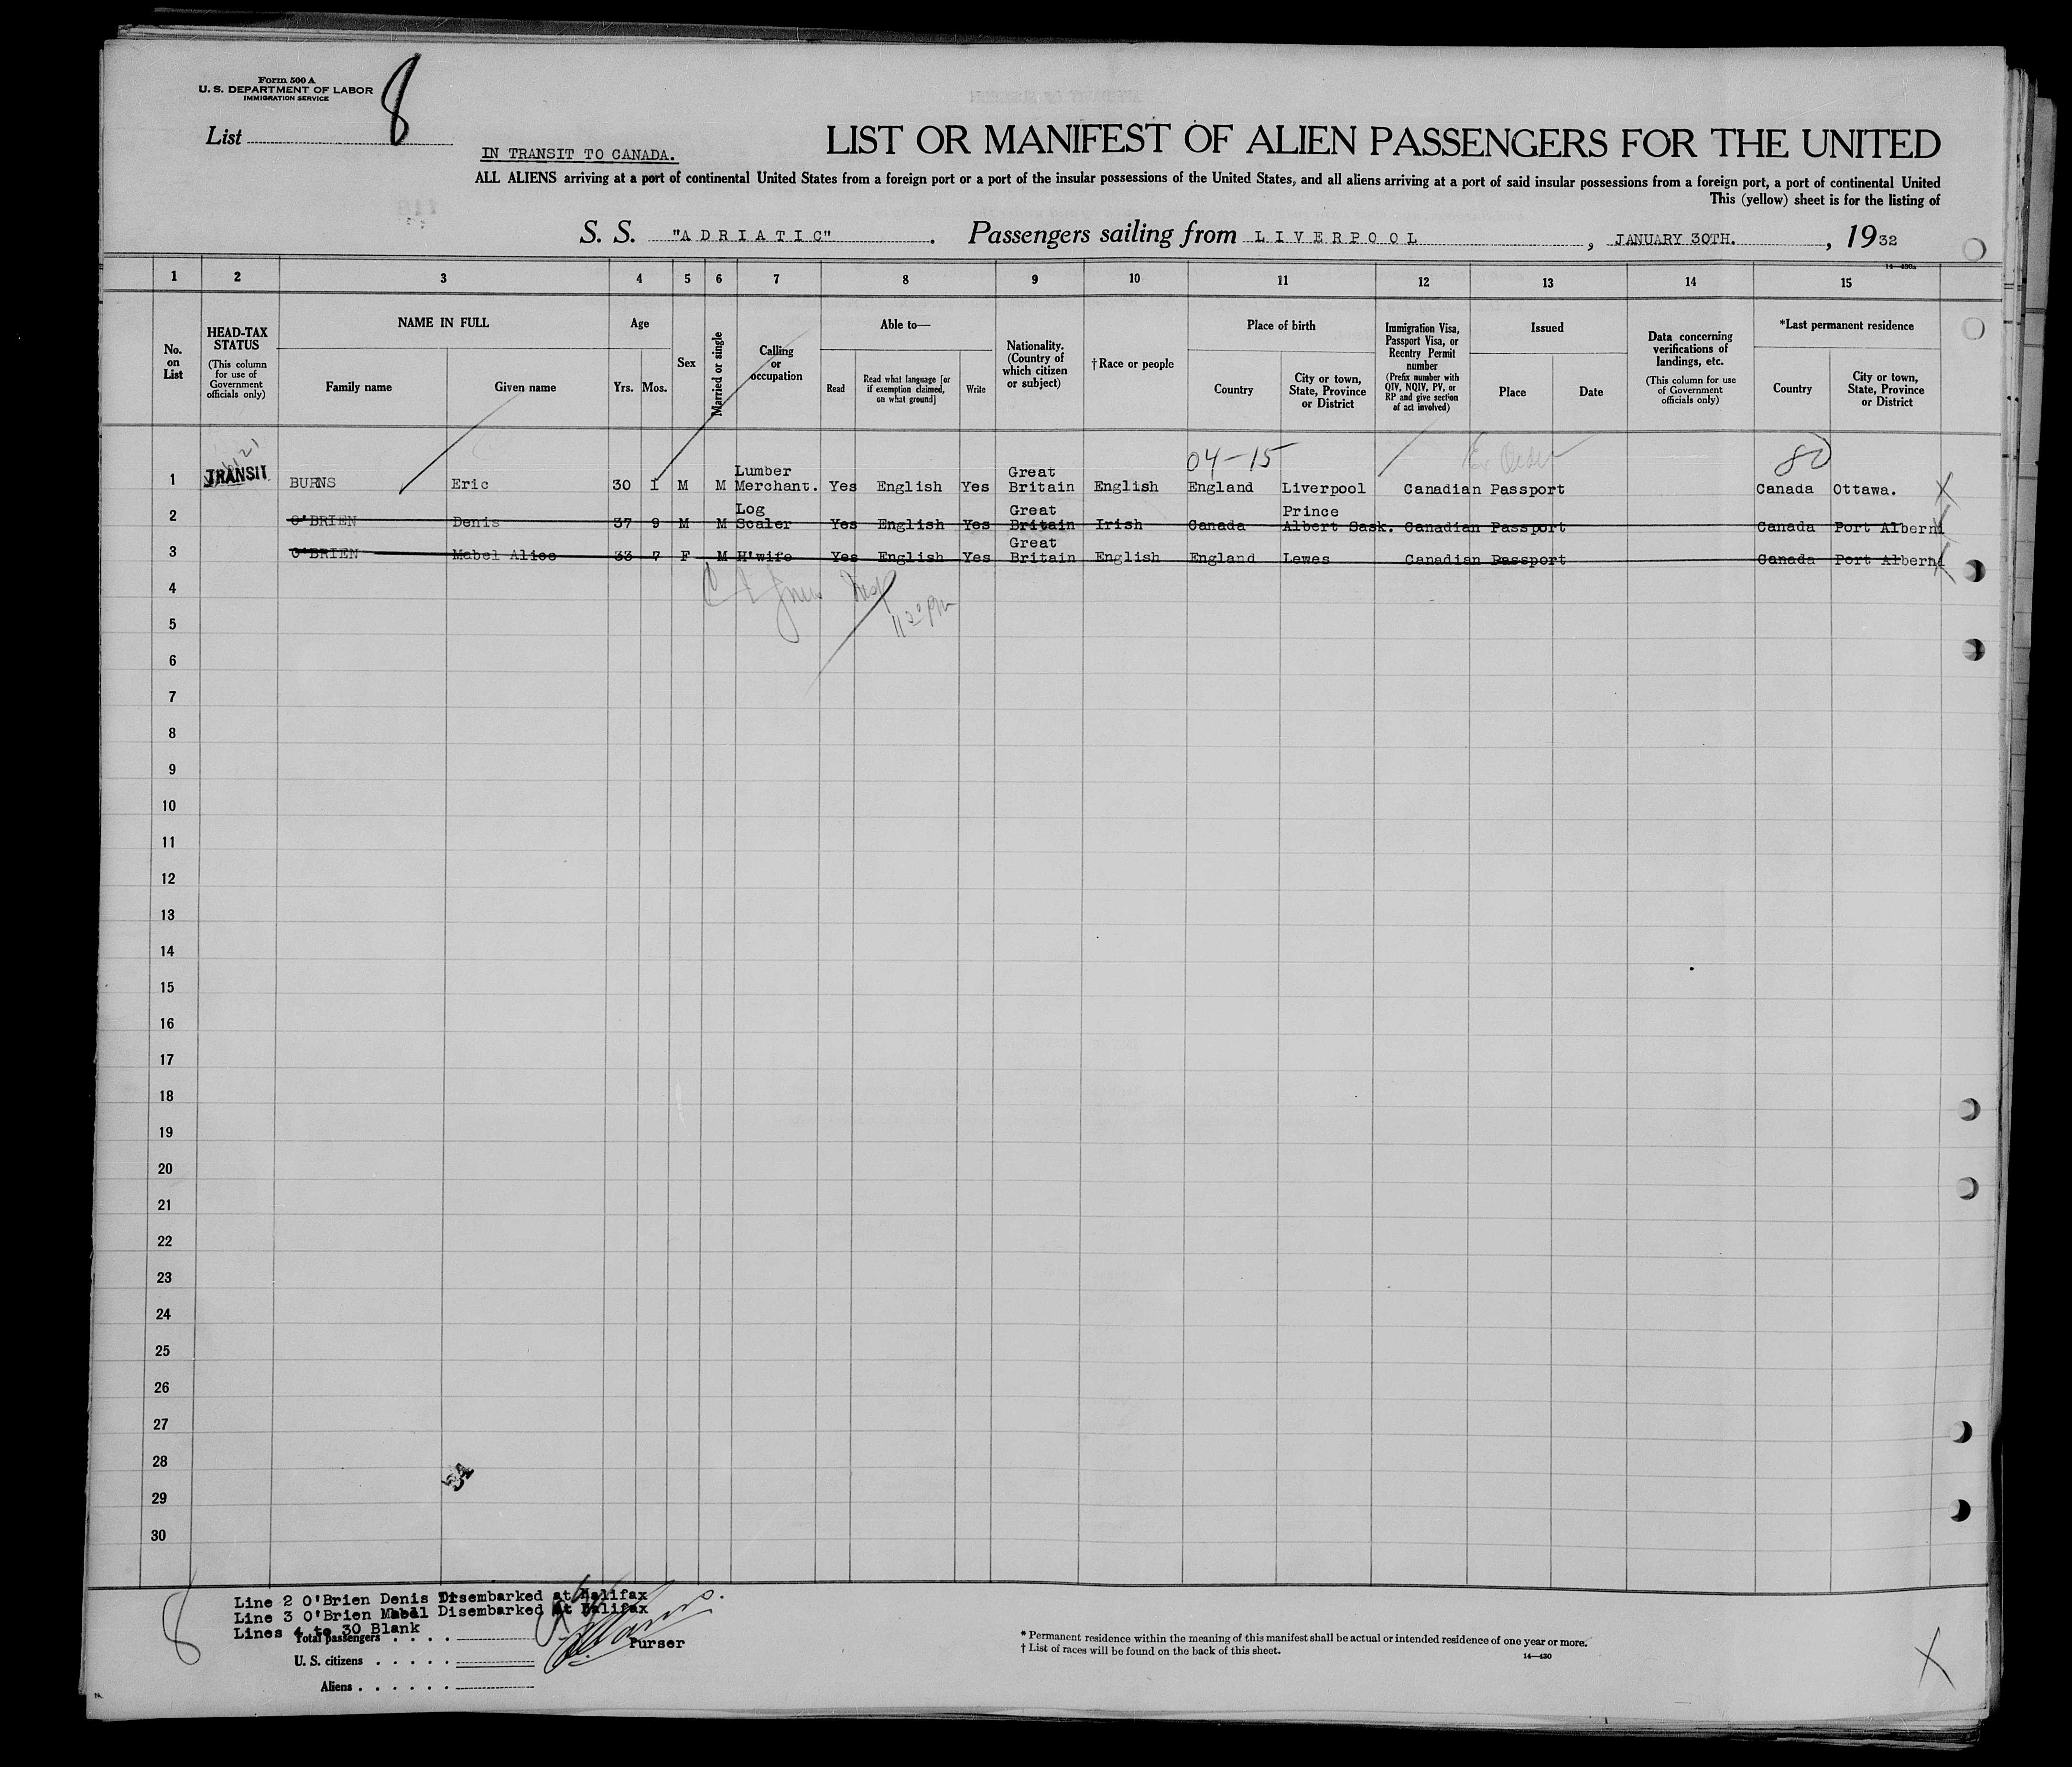 Form 500 A
U. S. DEPARTMENT OF LABOR
IMMIGRATION SERVICE
List 8
IN TRANSIT TO CANADA.
LIST OR MANIFEST OF ALIEN PASSENGERS FOR THE UNITED
ALL ALIENS arriving at a port of continental United States from a foreign port or a port of the insular possessions of the United States, and all aliens arriving at a port of said insular possessions from a foreign port, a port of continental United
This (yellow) sheet is for the listing of
S. S. "ADRIATIC". Passengers sailing from LIVERPOOL, JANUARY 30TH., 1932
14—430a
1 2 3 4 5 6 7 8 9 10 11 12 13 14 15
No. on List
HEAD-TAX STATUS
(This column for use of Government officials only)
NAME IN FULL
Family name
Given name
Age
Yrs. Mos.
Sex
Married or single
Calling or occupation
Able to—
Read
Read what language [or if exemption claimed, on what ground]
Write
Nationality. (Country of which citizen or subject)
†Race or people
Place of birth
Country
City or town, State, Province or District
Immigration Visa, Passport Visa, or Reentry Permit number
(Prefix number with QIV, NQIV, PV, or RP and give section of act involved)
Issued
Place
Date
Data concerning verifications of landings, etc.
(This column for use of Government officials only)
*Last permanent residence
Country
City or town, State, Province or District
04-15
80
1 TRANSIT BURNS Eric 30 1 M M Lumber Merchant. Yes English Yes Great Britain English England Liverpool Canadian Passport Canada Ottawa. X
2 O'BRIEN Denis 37 9 M M Log Scaler Yes English Yes Great Britain Irish Canada Prince Albert Sask. Canadian Passport Canada Port Alberni X
3 O'BRIEN Mabel Alice 33 7 F M H'wife Yes English Yes Great Britain English England Lewes Canadian Passport Canada Port Alberni X
4
5
6
7
8
9
10
11
12
13
14
15
16
17
18
19
20
21
22
23
24
25
26
27
28
29
30
8
Line 2 O'Brien Denis Disembarked at Halifax
Line 3 O'Brien Mabel Disembarked At Halifax
Lines 4 to 30 Blank
Total passengers
Purser
U. S. citizens
Aliens
* Permanent residence within the meaning of this manifest shall be actual or intended residence of one year or more.
† List of races will be found on the back of this sheet.
14—430
X